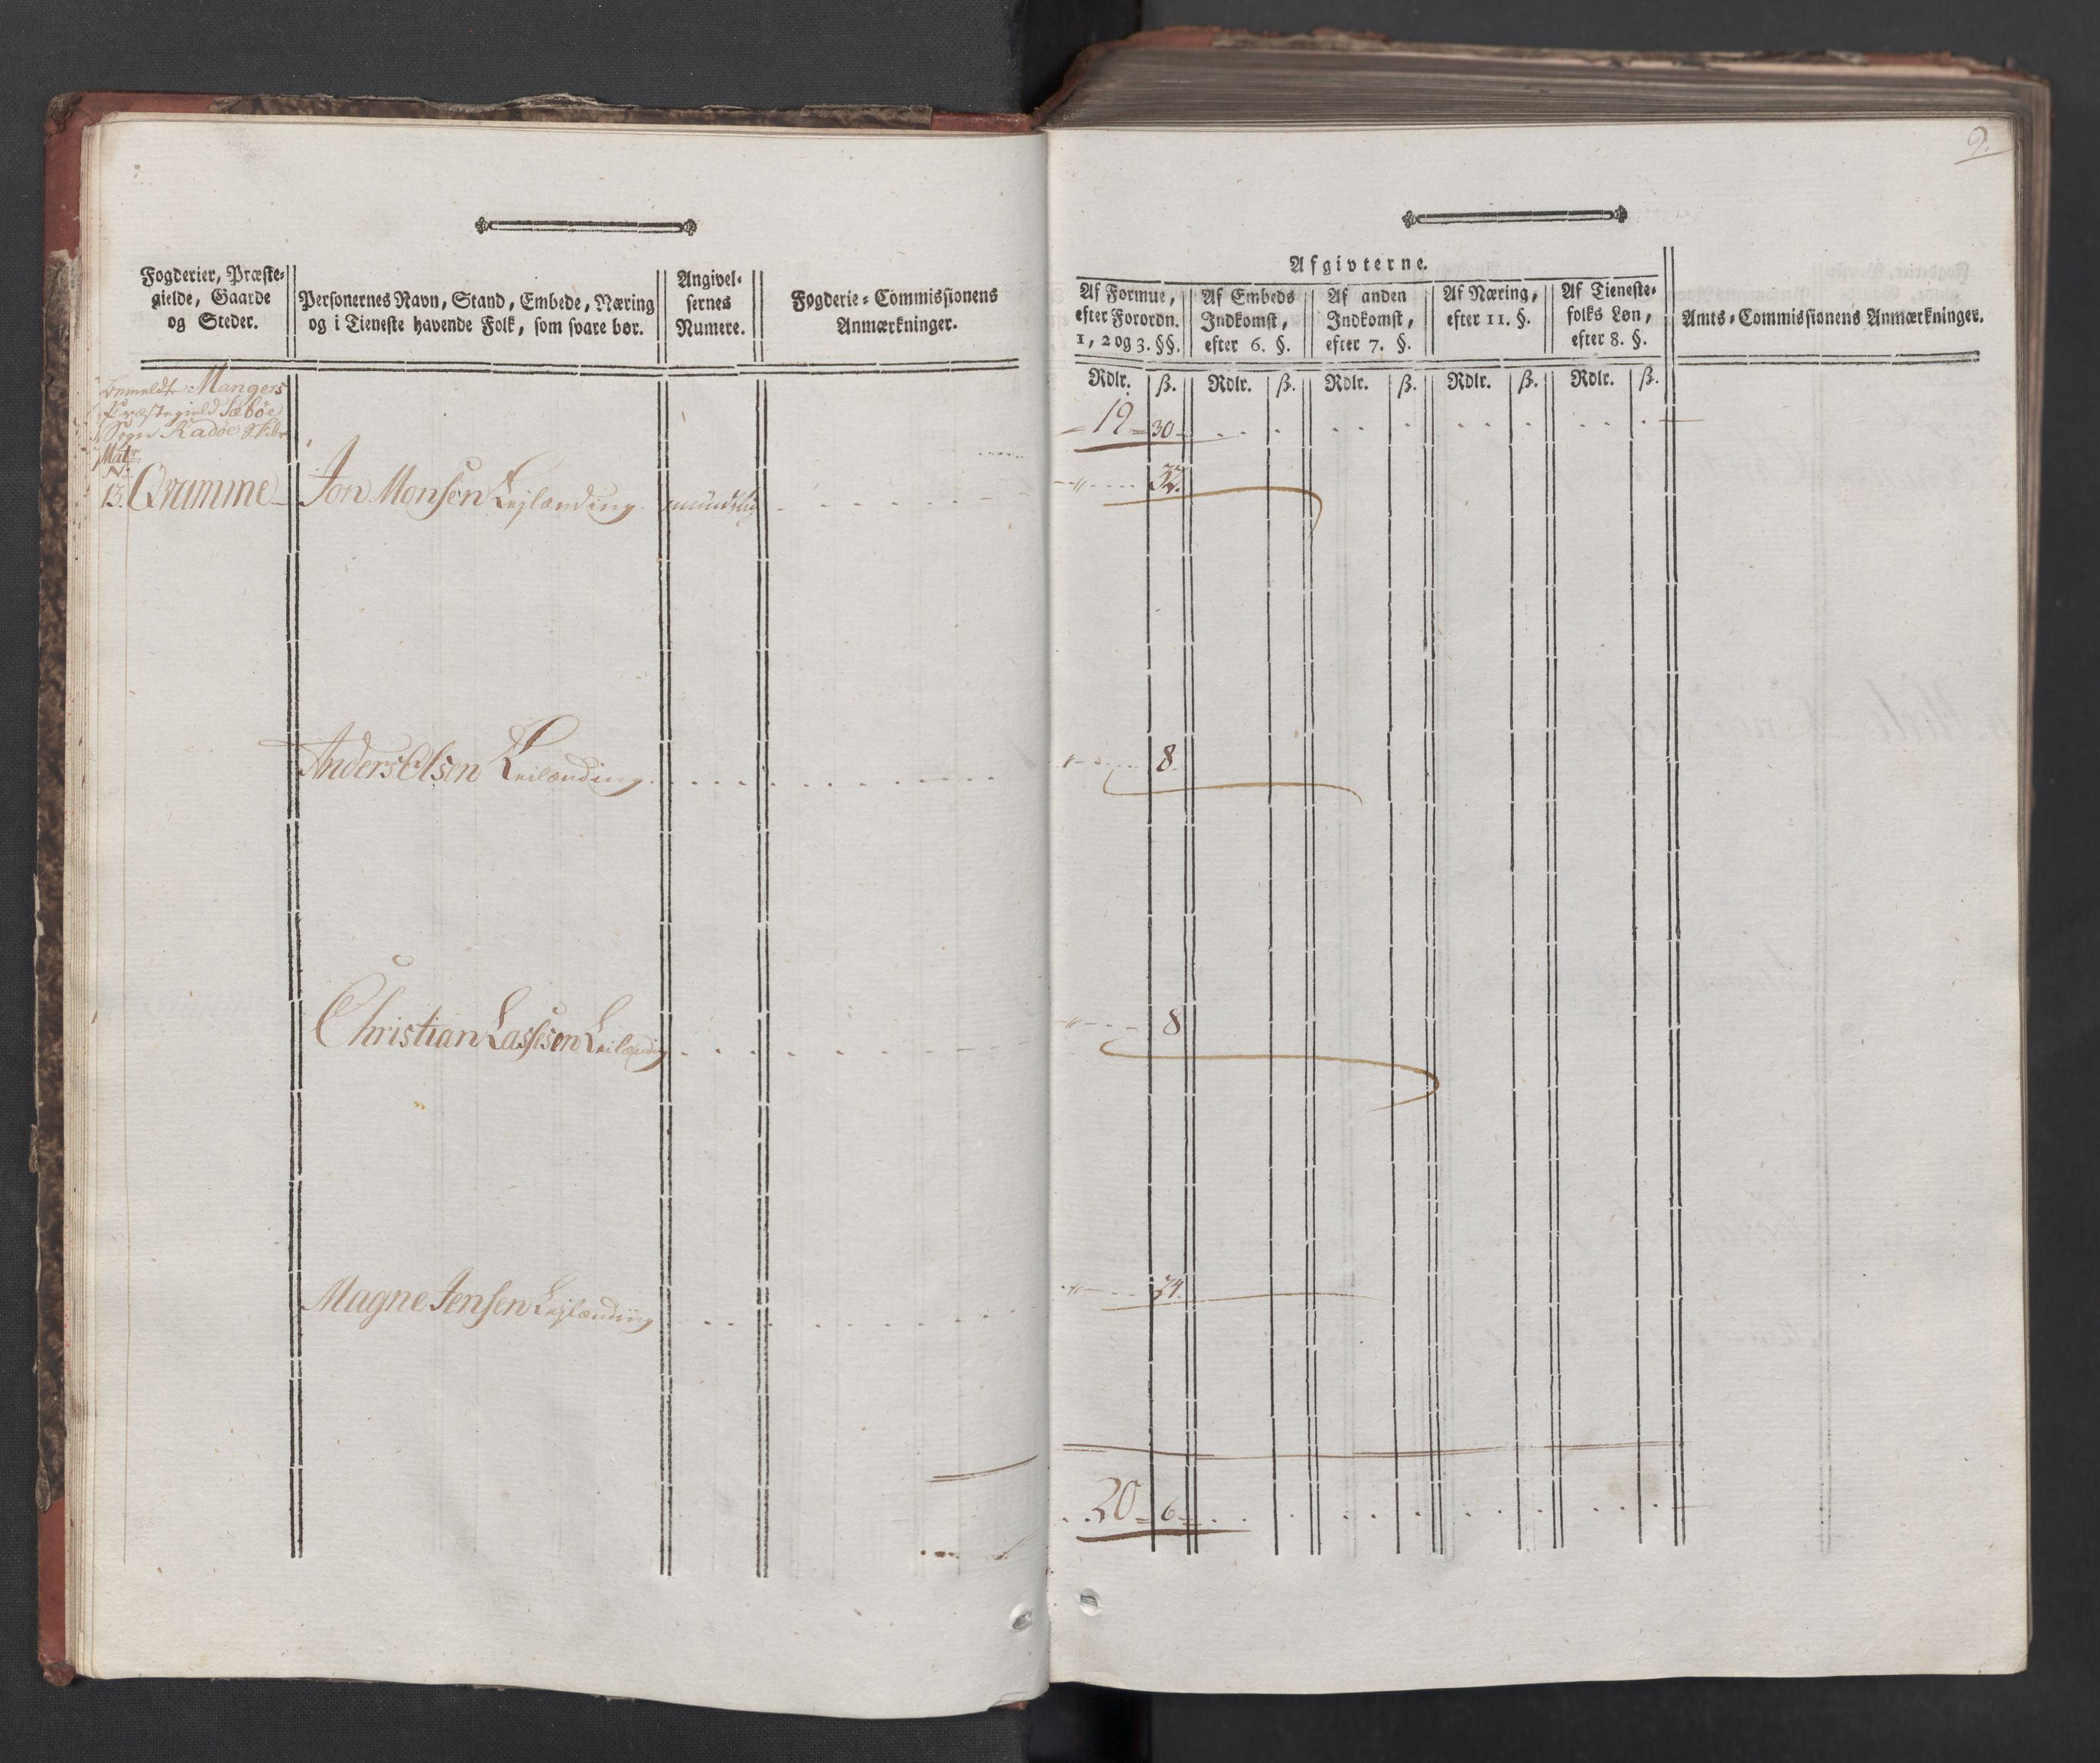 Fogderier, Præste-
gielde, Gaarde
og Steder.
Personernes Navn, Stand, Embede, Næring
og i Tieneste havende Folk, som svare bør.
Angivel-
sernes
Numere.
Fogderie-Commissionens
Anmærkninger.
bemeldte Mangers
Præstegield Sæbøe
Sogn Radøe Skibr
Matr:
N:
13. Qvamme Jon Monsen Lejlænding mündtlig
Anders Olsen Leilænding
Christian Lassesen Leilænding
Magne Jensen Lejlænding
9.
Afgivterne.
Af Formue,
efter Forordn.
1, 2 og 3. §§.
Af Embeds
Indkomst,
efter 6. §.
Af anden
Indkomst,
efter 7. §.
Af Næring,
efter 11. §.
Af Tieneste-
folks Løn,
efter 8. §.
Amts-Commissionens Anmærkninger.
Rdlr. ß. Rdlr. ß. Rdlr. ß. Rdlr. ß. Rdlr. ß.
19 30
32.
8
8
24.
20 6